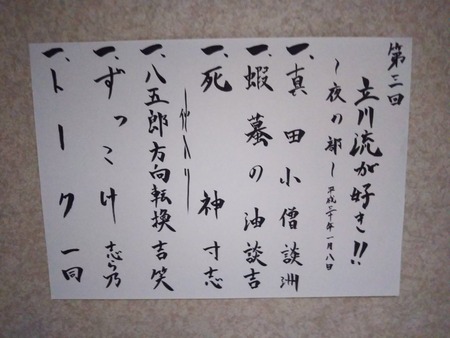 第三回
立川流が好き!!
～夜の部～ 平成三十年一月八日
一、真田小僧 談洲
一、蝦蟇の油 談吉
一、死神 寸志
―仲入り―
一、八五郎方向転換 吉笑
一、ずっこけ 志ら乃
一、トーク 一同